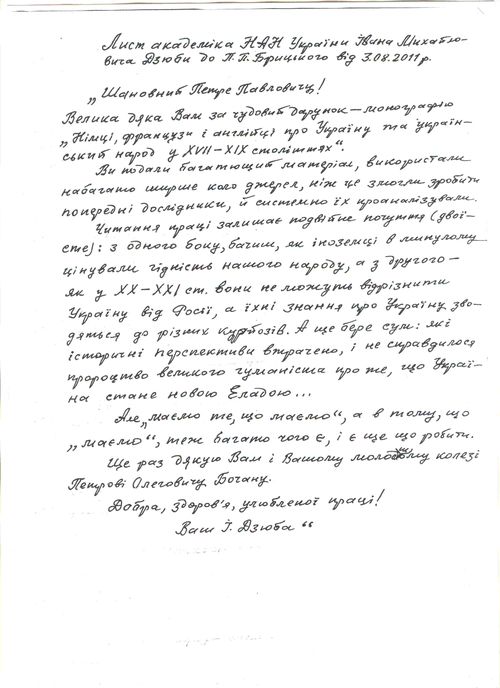 Лист академіка НАН України Івана Михайло-
вича Дзюби до П.П. Брицького від 3.08.2011 р.
„Шановний Петре Павловичу!
Велика дяка Вам за чудовий дарунок – монографію
„Німці, французи і англійці про Україну та україн-
ський народ у XVII–XIX століттях“.
Ви подали багатющий матеріал, використали
набагато ширше коло джерел, ніж це змогли зробити
попередні дослідники, й системно їх проаналізували.
Читання праці залишає подвійне почуття (двої-
сте): з одного боку, бачиш, як іноземці в минулому
цінували гідність нашого народу, а з другого –
як у XX–XXI ст. вони не можуть відрізнити
Україну від Росії, а їхні знання про Україну зво-
дяться до різних курйозів. А ще бере сум: які
історичні перспективи втрачено, і не справдилося
пророцтво великого гуманіста про те, що Украї-
на стане новою Еладою...
Але „маємо те, що маємо“, а в тому, що
„маємо“, теж багато чого є, і є ще що робити.
Ще раз дякую Вам і Вашому молодшому колезі
Петрові Олеговичу Бочану.
Добра, здоров'я, улюбленої праці!
Ваш І. Дзюба“